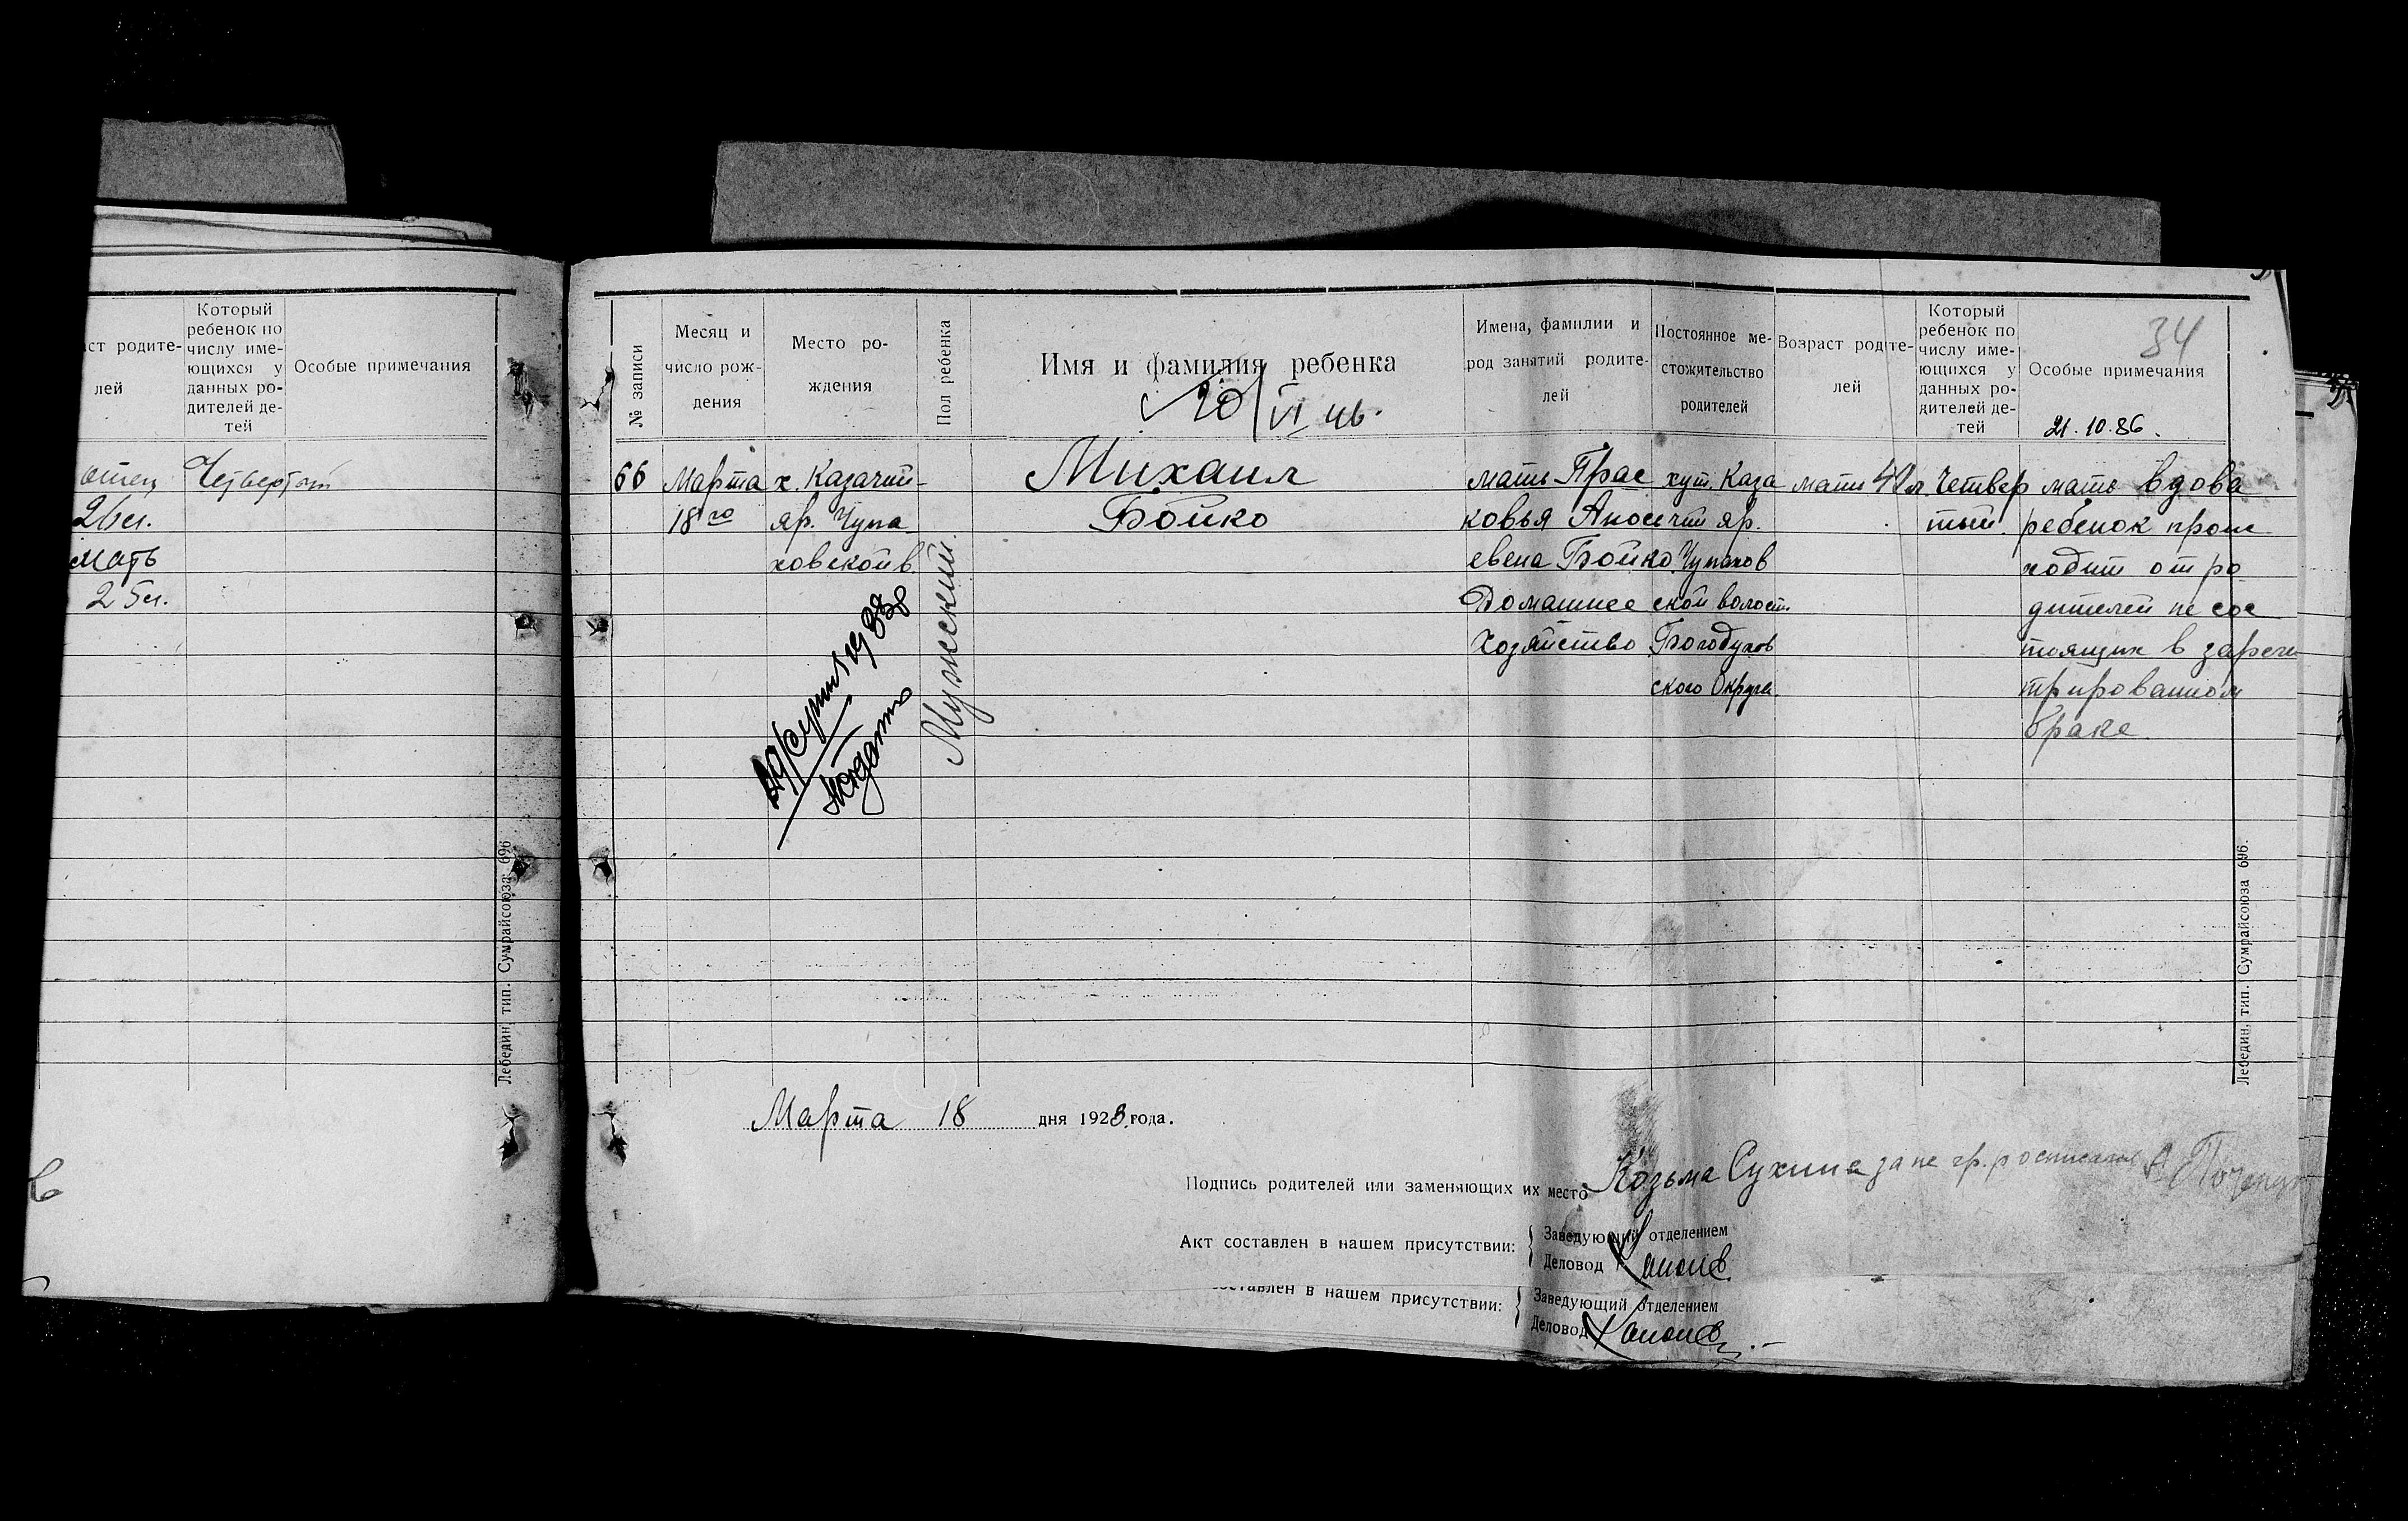 ст родите-
лей
Который
ребенок по
числу име-
ющихся у
данных ро-
дителей де-
тей
Особые примечания
отец Четвертый
26л.
мать
25л.
Лебедин, тип. Сумрайсоюза 696
34
№ записи
Месяц и
число рож-
дения
Место ро-
ждения
Пол ребенка
Имя и фамилия ребенка
20/VI 46.
Имена, фамилии и
род занятий родите-
лей
Постоянное ме-
стожительство
родителей
Возраст родите-
лей
Который
ребенок по
числу име-
ющихся у
данных ро-
дителей де-
тей
Особые примечания
21.10.86.
66
Марта
18го
х. Казачий
яр. Чупа
ховской в.
Мужский
Михаил
Бойко
мать Прас
ковья Анось
евена Бойко
Домашнее
Хозяйство
хут. Каза
чий яр.
Чупахов
ской волост.
Богодухов
ского Округа.
мати
Четвер
тый.
мать вдова
ребенок проис
ходит от ро
дителей не сос
тоящих в зареги
трированном
браке.
Лебедин, тип. Сумрайсоюза 696.
Марта 18 дня 1923 года.
Подпись родителей или заменяющих их место Козьма Сухина за не гр. росписался
Акт составлен в нашем присутствии:
Заведующий отделением
Деловод
составлен в нашем присутствии:
Заведующий отделением
Деловод